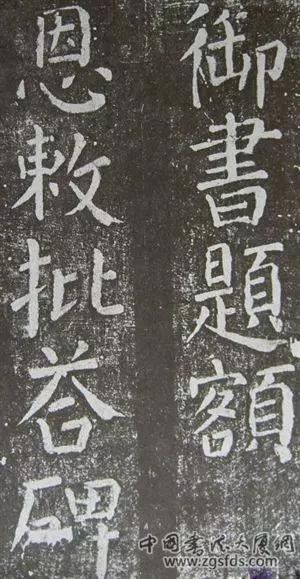 御書題額
恩敕批荅碑
中国书法大厦网
www.zgsfds.com